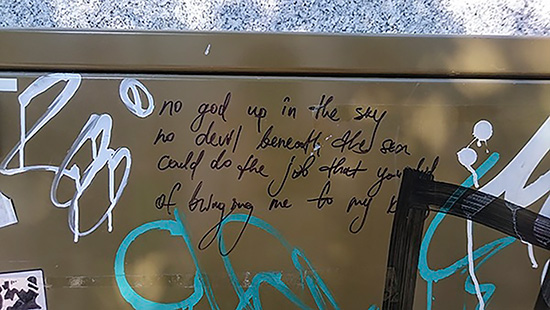 no god up in the sky
no devil beneath the sea
could do the job that you did
of bringing me to my